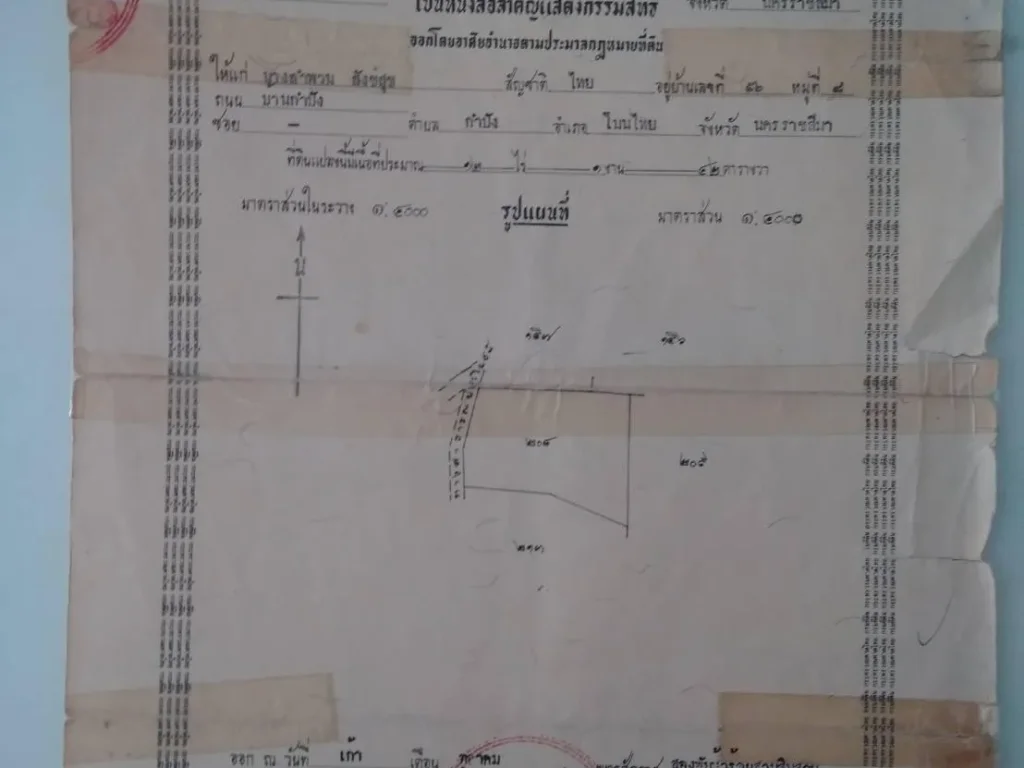 เป็นหนังสือสำคัญแสดงกรรมสิทธิ์ จังหวัด นครราชสีมา
ออกโดยอาศัยอำนาจตามประมวลกฎหมายที่ดิน
ให้แก่ สัญชาติ ไทย อยู่บ้านเลขที่ ๕๖ หมู่ที่ ๘
ถนน บ้านกำปัง
ซอย – ตำบล กำปัง อำเภอ โนนไทย จังหวัด นครราชสีมา
ที่ดินแปลงนี้มีเนื้อที่ประมาณ ๑๒ ไร่ ๑ งาน ๔๒ ตารางวา
มาตราส่วนในระวาง ๑:๔๐๐๐ รูปแผนที่ มาตราส่วน ๑:๔๐๐๐
น
๑๕๗ ๑๕๖
๒๐๘
๒๐๕
ทางสาธารณ
๒๑๓
ออก ณ วันที่ เก้า เดือน ตุลาคม